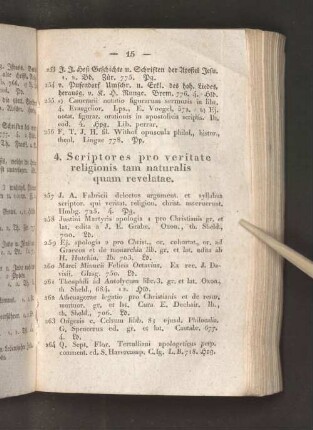 — 15 —
253 J. J. Heß Geschichte u. Schriften der Apostel Jesu.
1, 2. Bd, Zür. 775. Pg.
254 v. Pufendorf Umschr. u. Erkl. des hoh. Liedes,
herausg. v. K. H. Runge. Brem. 776. 4. Hld.
255 C. Coronani notatio figurarum sermonis in libr.
4. Evangelior, Lps, E. Voegel, 572. 2) Ej.
notat. figurar. orationis in apostolicis scriptis. Ib.
eod. 4. Hpg. Lib. perrar.
256 F. T. J. H. fil. Withof opuscula philol, histor,
theol. Lingae 778. Pp.
4. Scriptores pro veritate
religionis tam naturalis
quam revelatae.
257 J. A. Fabricii delectus argument. et syllabus
scriptor. qui veritat. religion. christ. asseruerunt.
Hmbg. 725. 4. Pg.
258 Justini Martyris apologia 1 pro Christianis gr. et
lat. edita a J. E. Grabe. Oxon., th. Sheld,
700. Ld.
259 Ej. apologia 2 pro Christ., or. cohortat, or. ad
Graecos et de monarchia lib. gr. et lat. edita ab
H. Hutchin, Ib. 703. Ld.
260 Marci Minucii Felicis Octavius. Ex rec. J. Davisii. Glasg. 750. Ld.
261 Theophili ad Autolycum libr. 3. gr. et lat. Oxon.
th Sheld., 684. 12. Hld.
262 Athenagorae legatio pro Christianis et de resur.
mortuor, gr. et lat. Cura E. Dechair, Ib.,
th. Sheld., 706. Ld.
263 Origenis c. Celsum libb. 8; ejusd. Philocalia.
G. Spencerus ed. gr. et lat. Cantabr. 677.
4. Ld.
264 Q. Sept. Flor. Tertulliani apologeticus perp.
comment. ed. S. Havercamp, C. fg. L. B. 718. Hpg.